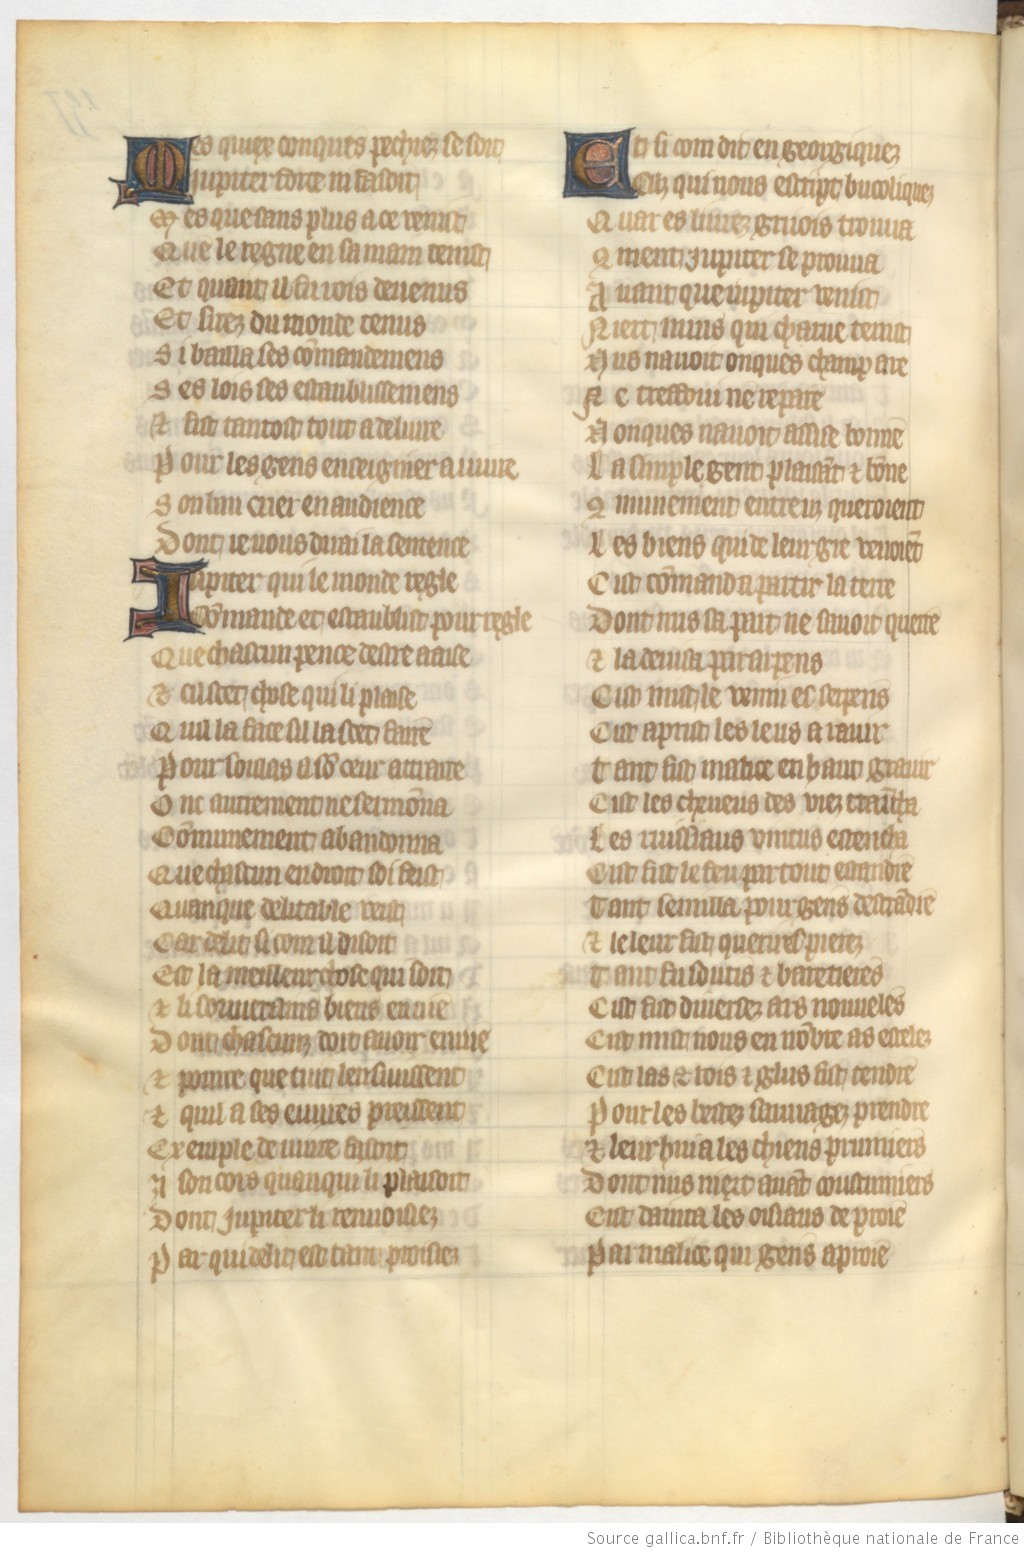 Mes quiex conques pechiez se soit
Jupiter force m faisoit
Mes que sans plus a ce venist
Que le regne en sa main tenist
Et quant il fu rois devenus
Et sirez du monde tenus
Si bailla ses cōmandemens
Ses lois ses establissemens
Et fist tantost tout a delivre
Pour les gens enseignier a vivre
Son ban crier en audience
Dont ie vous dirai la sentence
Jupiter qui le monde regle
Cōmande et establist pour regle
Que chascun pence destre aaise
Et cil scet chose qui li plaise
Quil la face sil la scet faire
Pour soulas a sō cuer attraire
Onc autrement ne sermōna
Cōmunement abandonna
Que chascun endroit soi feist
Quanque delitable veist
Car delit si com il disoit
Est la meilleur chose qui soit
Et li souverains biens en vie
Dont chascunz doit avoir envie
Et pource que tuit lensivissent
Et quil a ses euvres preissent
Exemple de vivre faisoit
A son cors quanqui li plaisoit
Dont Jupiter li renvoisiez
Par qui delit est tant proisiez
Et si com dit en georgiquez
Cilz qui nous escript bucoliquez
Quar es livrez grivois trouva
9ment Jupiter se prouva
Avant que iupiter venist
Niert nuns qui charue tenist
Nus navoit onques champ are
Ne cresfoui ne repare
Nonques navoit assise bonne
La simple gent plaisāt et bōne
9munement entreuz queroient
Les biens qui de leur gre venoiēt
Cist cōmanda partir la terre
Dont nus sa part ne savoit querre
Et la devisa par arpens
Cist mist le venin es serpens
Cist aprist les leus a ravir
Tant fist malice en haut gravir
Cist les chenens des viez trāncha
Les ruissiaus vinens estencha
Cist fist le feu par tout estandre
Tant semilla pour gens destādre
Et le leur fist querre es pierez
Tant fu soutis et baretieres
Cist fist diversez ars nouveles
Cist mist nons en nōbre as estelez
Cist las et rois et glus fist tendre
Pour les bestez sauvagez prendre
Et leur huia les chiens prumiers
Dont nus niert avāt coustumiers
Cist danta les oisiaus de proie
Par malice qui gens aproie
Source gallica.bnf.fr / Bibliothèque nationale de France